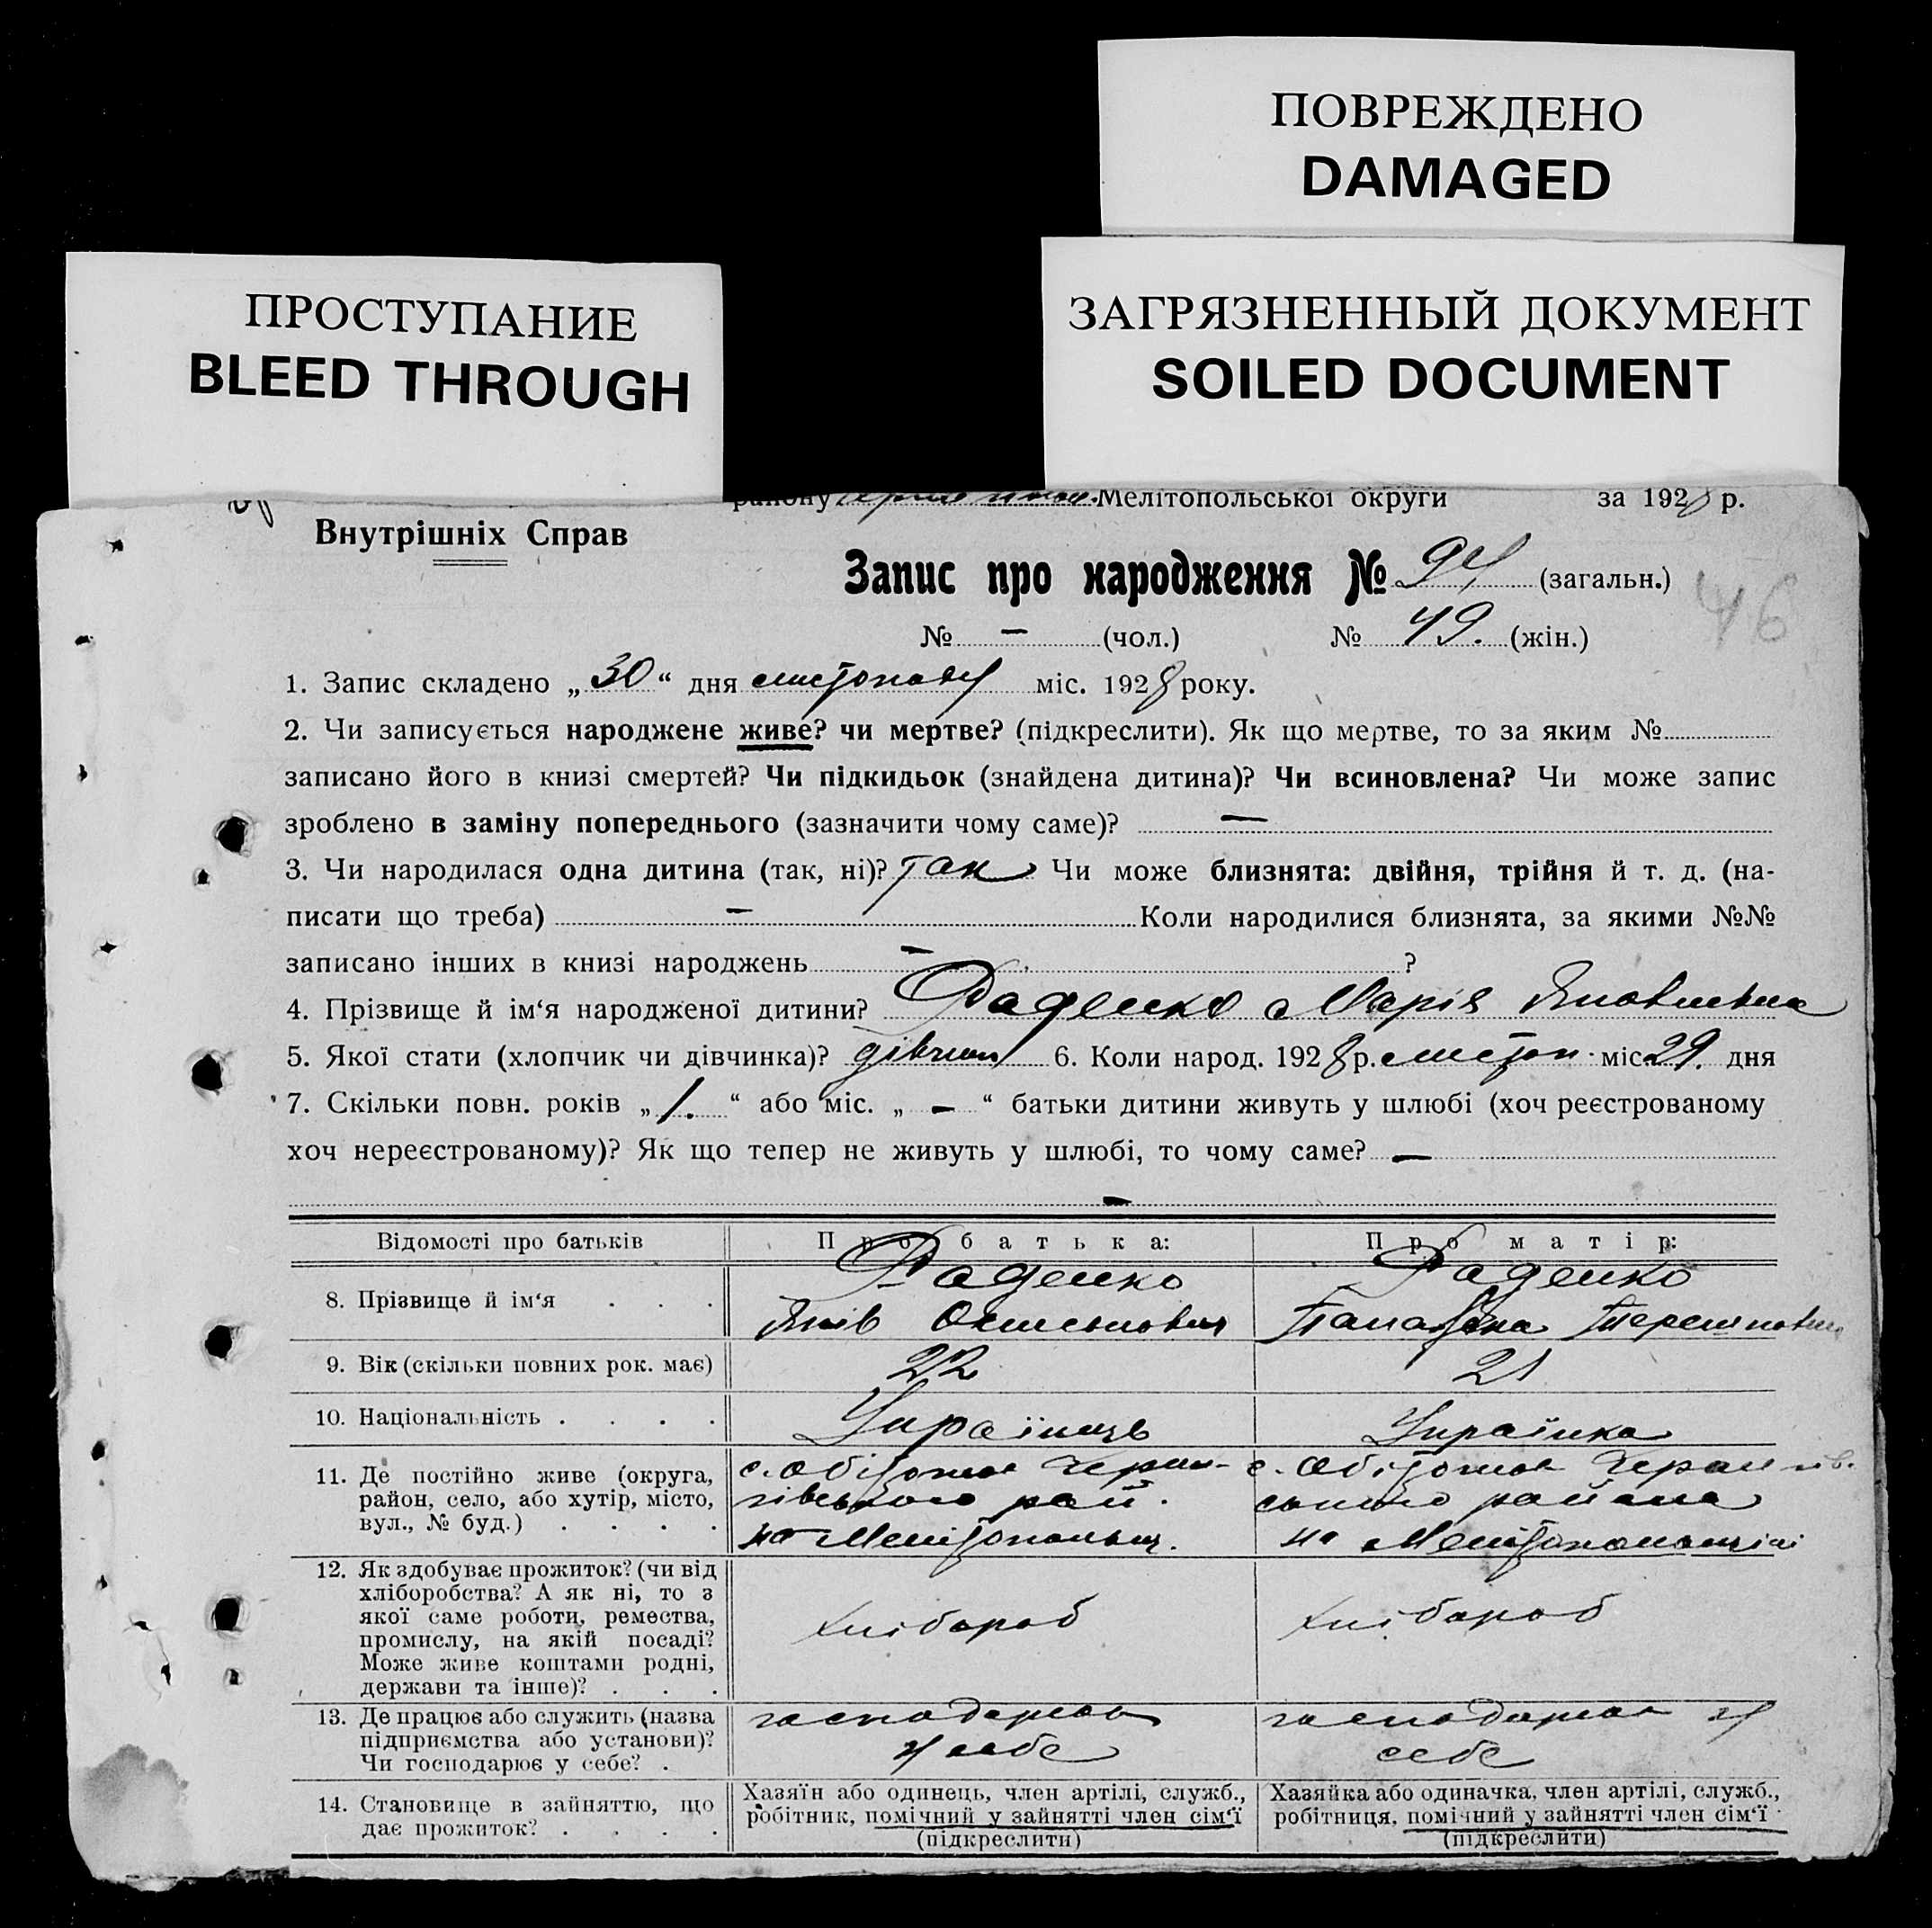 ПОВРЕЖДЕНО
DAMAGED
ПРОСТУПАНИЕ
BLEED THROUGH
ЗАГРЯЗНЕННЫЙ ДОКУМЕНТ
SOILED DOCUMENT
району Мелітопольської округи за 1928 р.
Внутрішніх Справ
Запис про народження № 94 (загальн.)
46
№ — (чол.) № 49. (жін.)
1. Запис складено „30“ дня листопаду міс. 1928 року.
2. Чи записується народжене живе? чи мертве? (підкреслити). Як що мертве, то за яким №
записано його в книзі смертей? Чи підкидьок (знайдена дитина)? Чи всиновлена? Чи може запис
зроблено в заміну попереднього (зазначити чому саме)? —
3. Чи народилася одна дитина (так, ні)? так Чи може близнята: двійня, трійня й т. д. (на-
писати що треба) — Коли народилися близнята, за якими №№
записано інших в книзі народжень — ?
4. Прізвище й ім‘я народженої дитини? Фаденко Марія Яковлевна
5. Якої стати (хлопчик чи дівчинка)? дівчин 6. Коли народ. 1928 р. листоп. міс. 29. дня
7. Скільки повн. років „1.“ або міс. „—“ батьки дитини живуть у шлюбі (хоч реєстрованому
хоч нереєстрованому)? Як що тепер не живуть у шлюбі, то чому саме? —
—
Відомості про батьків Про батька: Про матір:
8. Прізвище й ім‘я . . . Фаденко Фаденко
Яків
9. Вік (скільки повних рок. має) 22 21
10. Національність . . . . Українець Українка
11. Де постійно живе (округа, с. Обіточна Черни- с. Обіточна Чернигів-
район, село, або хутір, місто, гівського рай. ського района
вул., № буд.) . . . . на Мелітопольщ. на Мелітопольщині
12. Як здобуває прожиток? (чи від
хліборобства? А як ні, то з
якої саме роботи, ремества, хлібороб хлібороб
промислу, на якій посаді?
Може живе коштами родні,
держави та інше)? . . .
13. Де працює або служить (назва господарює господарює у
підприємства або установи)? у себе себе
Чи господарює у себе? .
14. Становище в зайняттю, що Хазяїн або одинець, член артілі, служб., Хазяйка або одиначка, член артілі, служб.,
дає прожиток? . . . . робітник, помічний у зайнятті член сім‘ї робітниця, помічний у зайнятті член сім‘ї
(підкреслити) (підкреслити)